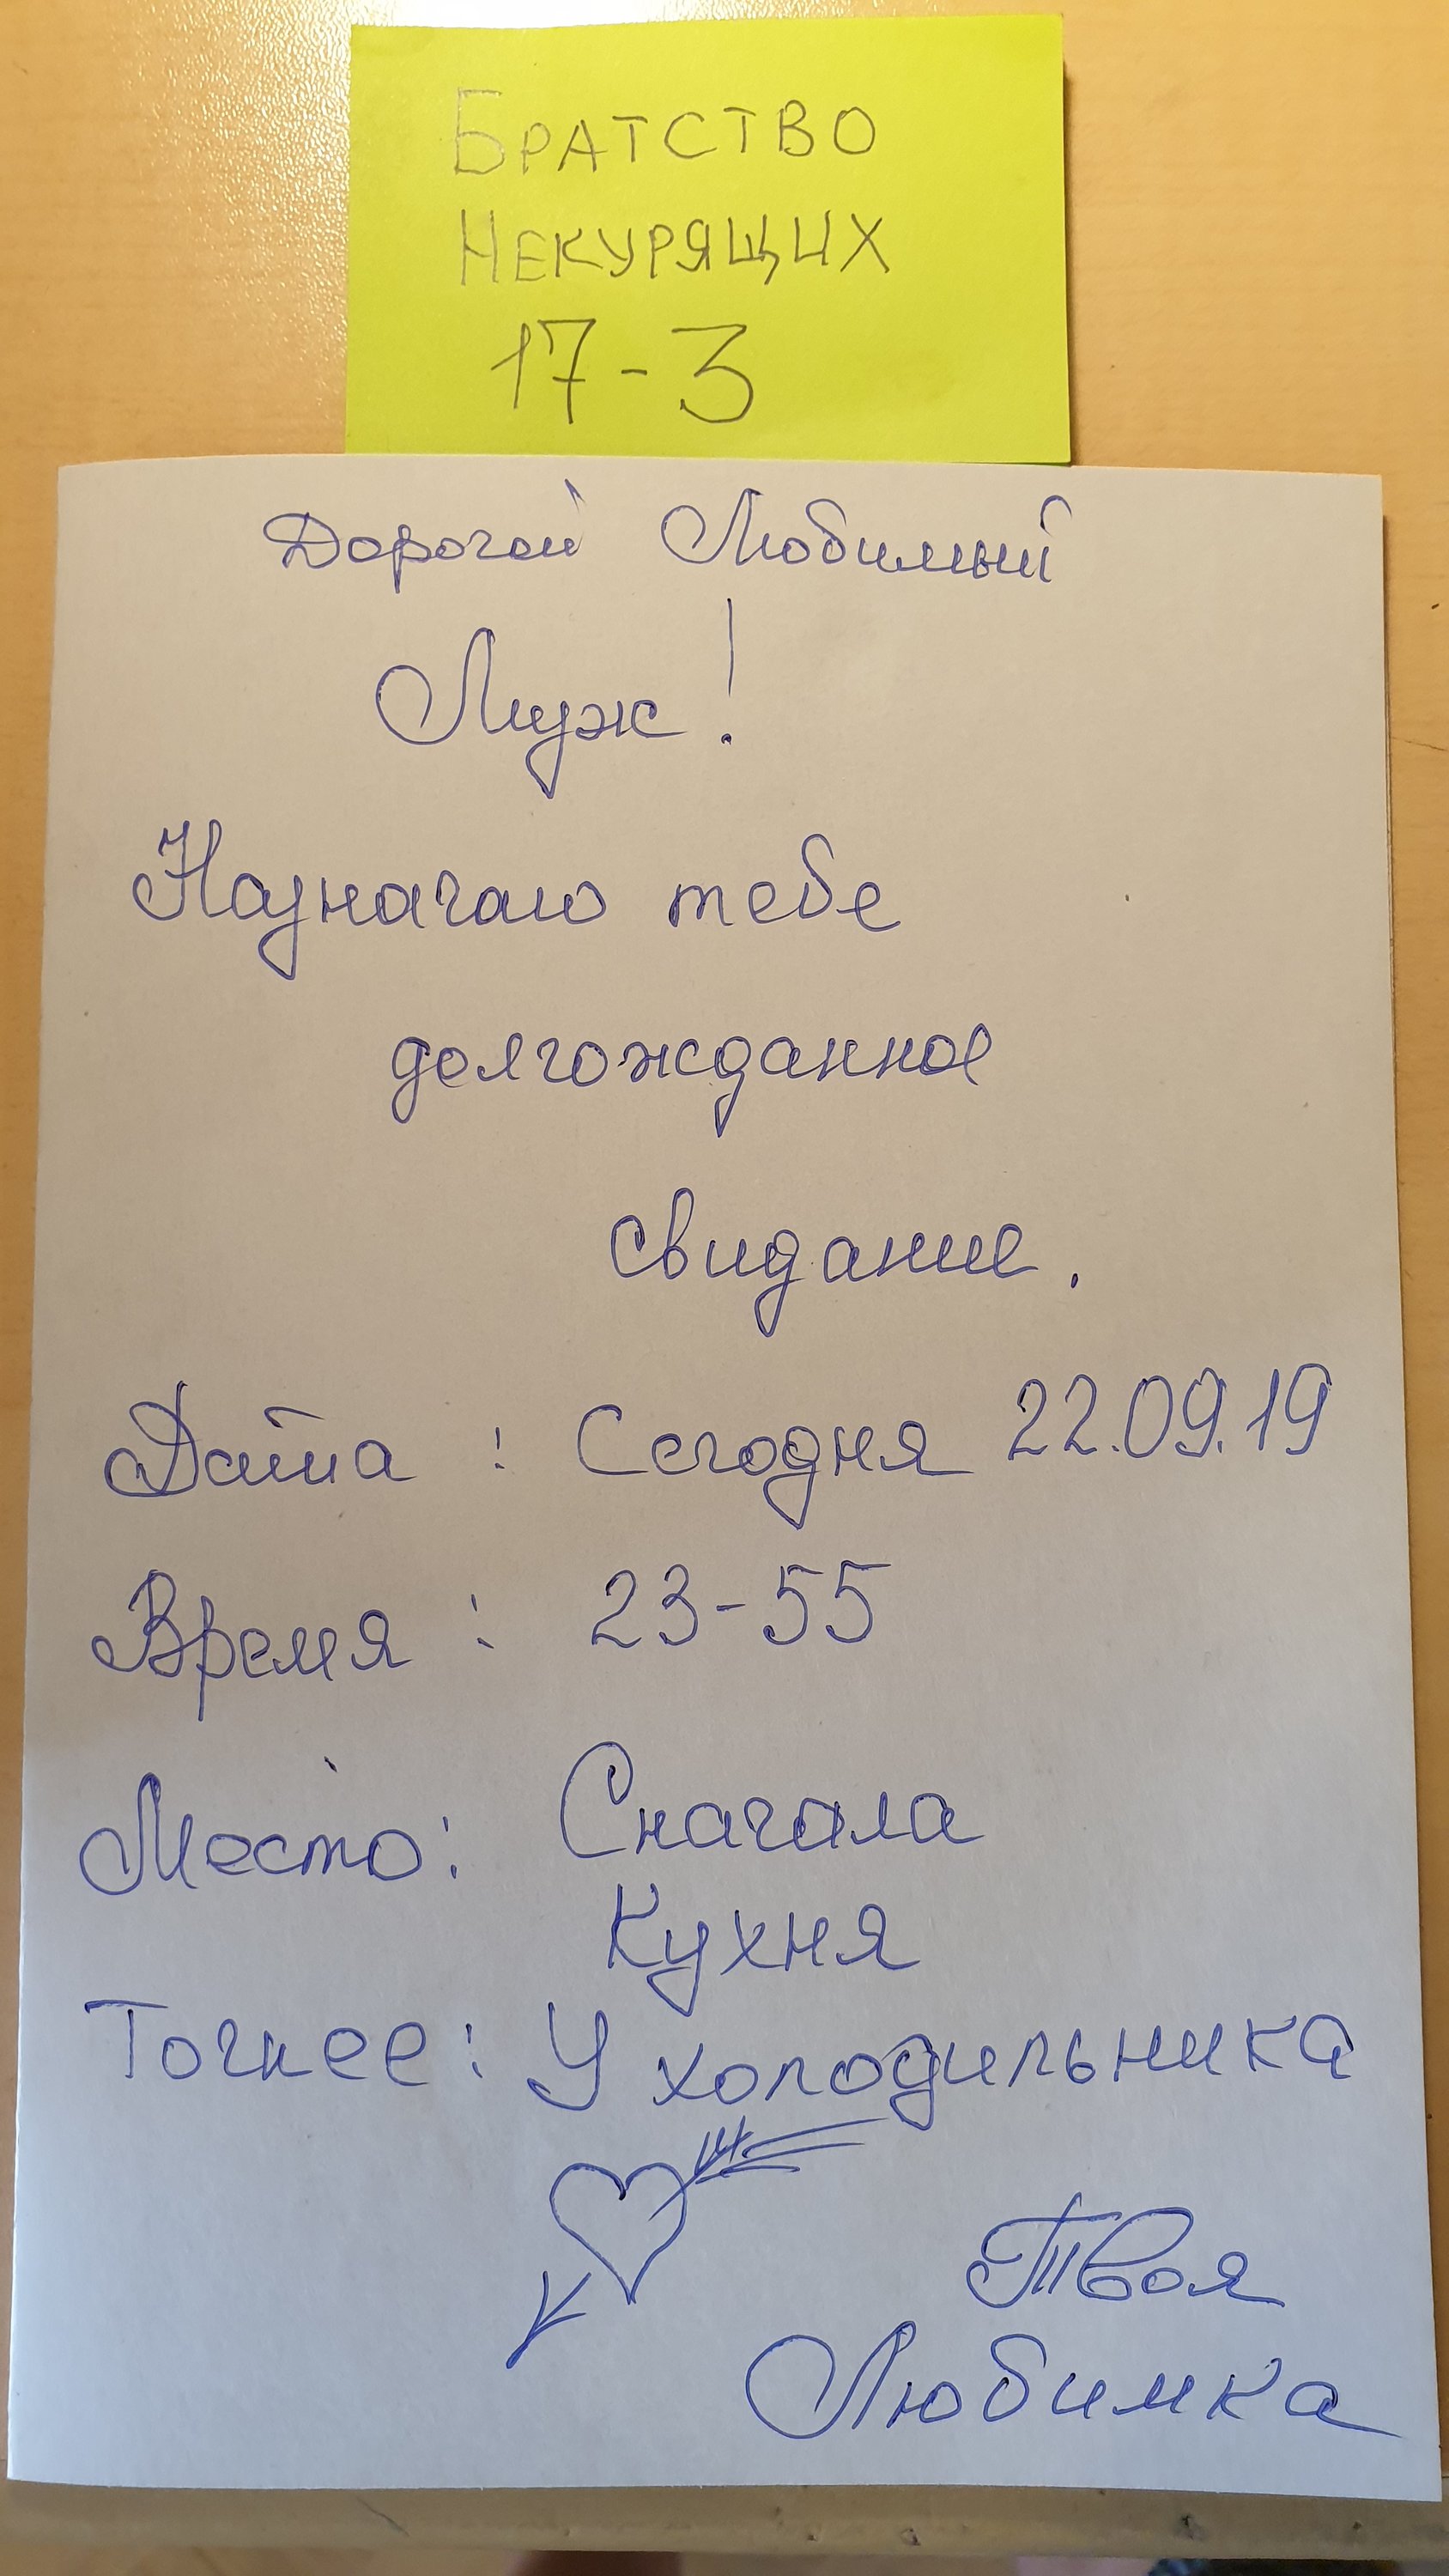 БРАТСТВО
НЕКУРЯЩИХ
17-3
Дорогой Любимый
Муж!
Назначаю тебе
долгожданное
свидание.
Дата: Сегодня 22.09.19
Время: 23-55
Место: Сначала
Кухня
Точнее: У холодильника
Твоя
Любимка